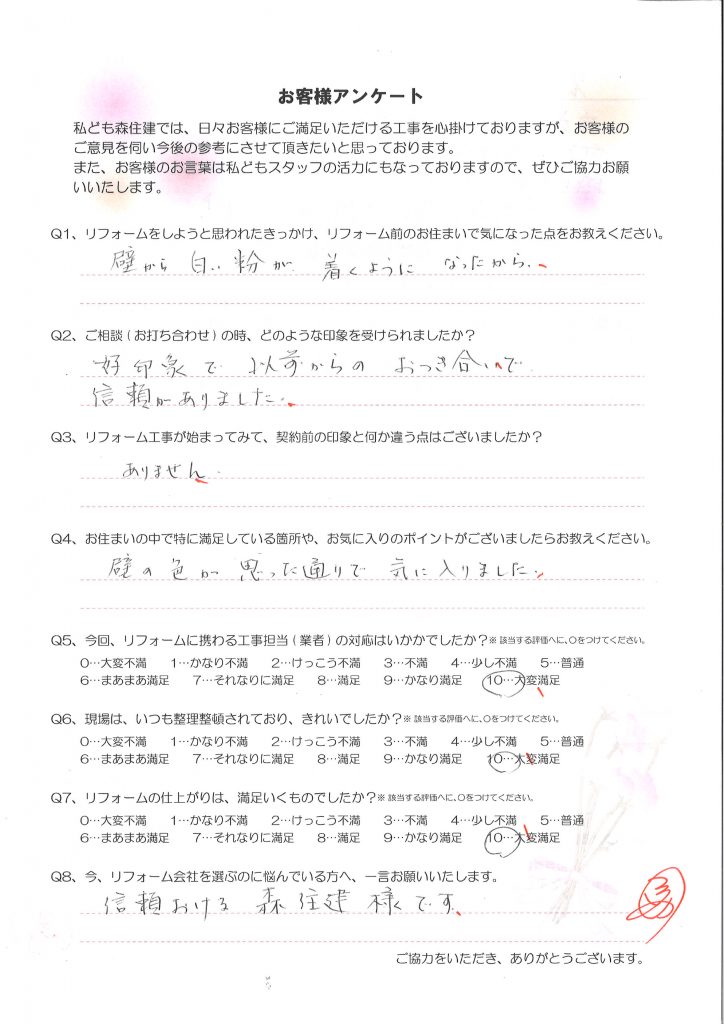 お客様アンケート
私ども森住建では、日々お客様にご満足いただける工事を心掛けておりますが、お客様の
ご意見を伺い今後の参考にさせて頂きたいと思っております。
また、お客様のお言葉は私どもスタッフの活力にもなっておりますので、ぜひご協力お願
いいたします。
Q1、リフォームをしようと思われたきっかけ、リフォーム前のお住まいで気になった点をお教えください。
壁から白い粉が着くようになったから、
Q2、ご相談(お打ち合わせ)の時、どのような印象を受けられましたか?
好印象で以前からのおつき合いで
信頼がありました。
Q3、リフォーム工事が始まってみて、契約前の印象と何か違う点はございましたか?
ありません。
Q4、お住まいの中で特に満足している箇所や、お気に入りのポイントがございましたらお教えください。
壁の色が思った通りで気に入りました。
Q5、今回、リフォームに携わる工事担当(業者)の対応はいかがでしたか?※該当する評価へに、○をつけてください。
0…大変不満 1…かなり不満 2…けっこう不満 3…不満 4…少し不満 5…普通
6…まあまあ満足 7…それなりに満足 8…満足 9…かなり満足 10…大変満足
Q6、現場は、いつも整理整頓されており、きれいでしたか?※該当する評価へに、○をつけてください。
0…大変不満 1…かなり不満 2…けっこう不満 3…不満 4…少し不満 5…普通
6…まあまあ満足 7…それなりに満足 8…満足 9…かなり満足 10…大変満足
Q7、リフォームの仕上がりは、満足いくものでしたか?※該当する評価へに、○をつけてください。
0…大変不満 1…かなり不満 2…けっこう不満 3…不満 4…少し不満 5…普通
6…まあまあ満足 7…それなりに満足 8…満足 9…かなり満足 10…大変満足
Q8、今、リフォーム会社を選ぶのに悩んでいる方へ、一言お願いいたします。
信頼おける森住建様くです、
ご協力をいただき、ありがとうございます。